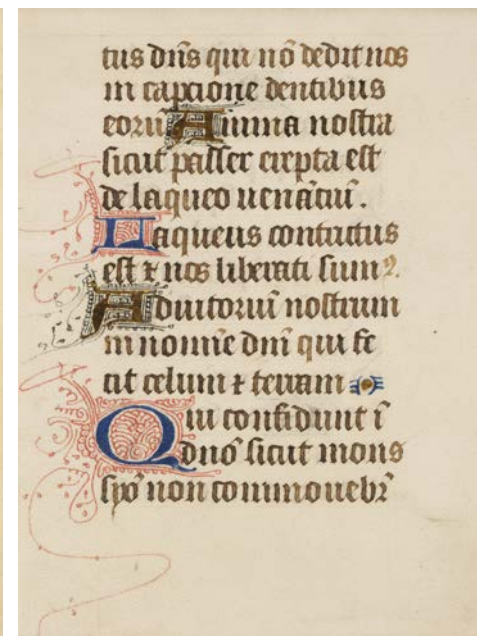 tus dn̄s qui nō dedit nos
in capcione dentibus
eorū Anima nostra
sicut passer erepta est
de laqueo uenātiū.
Laqueus contritus
est ⁊ nos liberati sumꝰ.
Adiutoriū nostrum
in nomīe dn̄i qui fe
cit celum ⁊ terram
Qui confidunt ī
dn̄o sicut mons
syō non commouebr̄